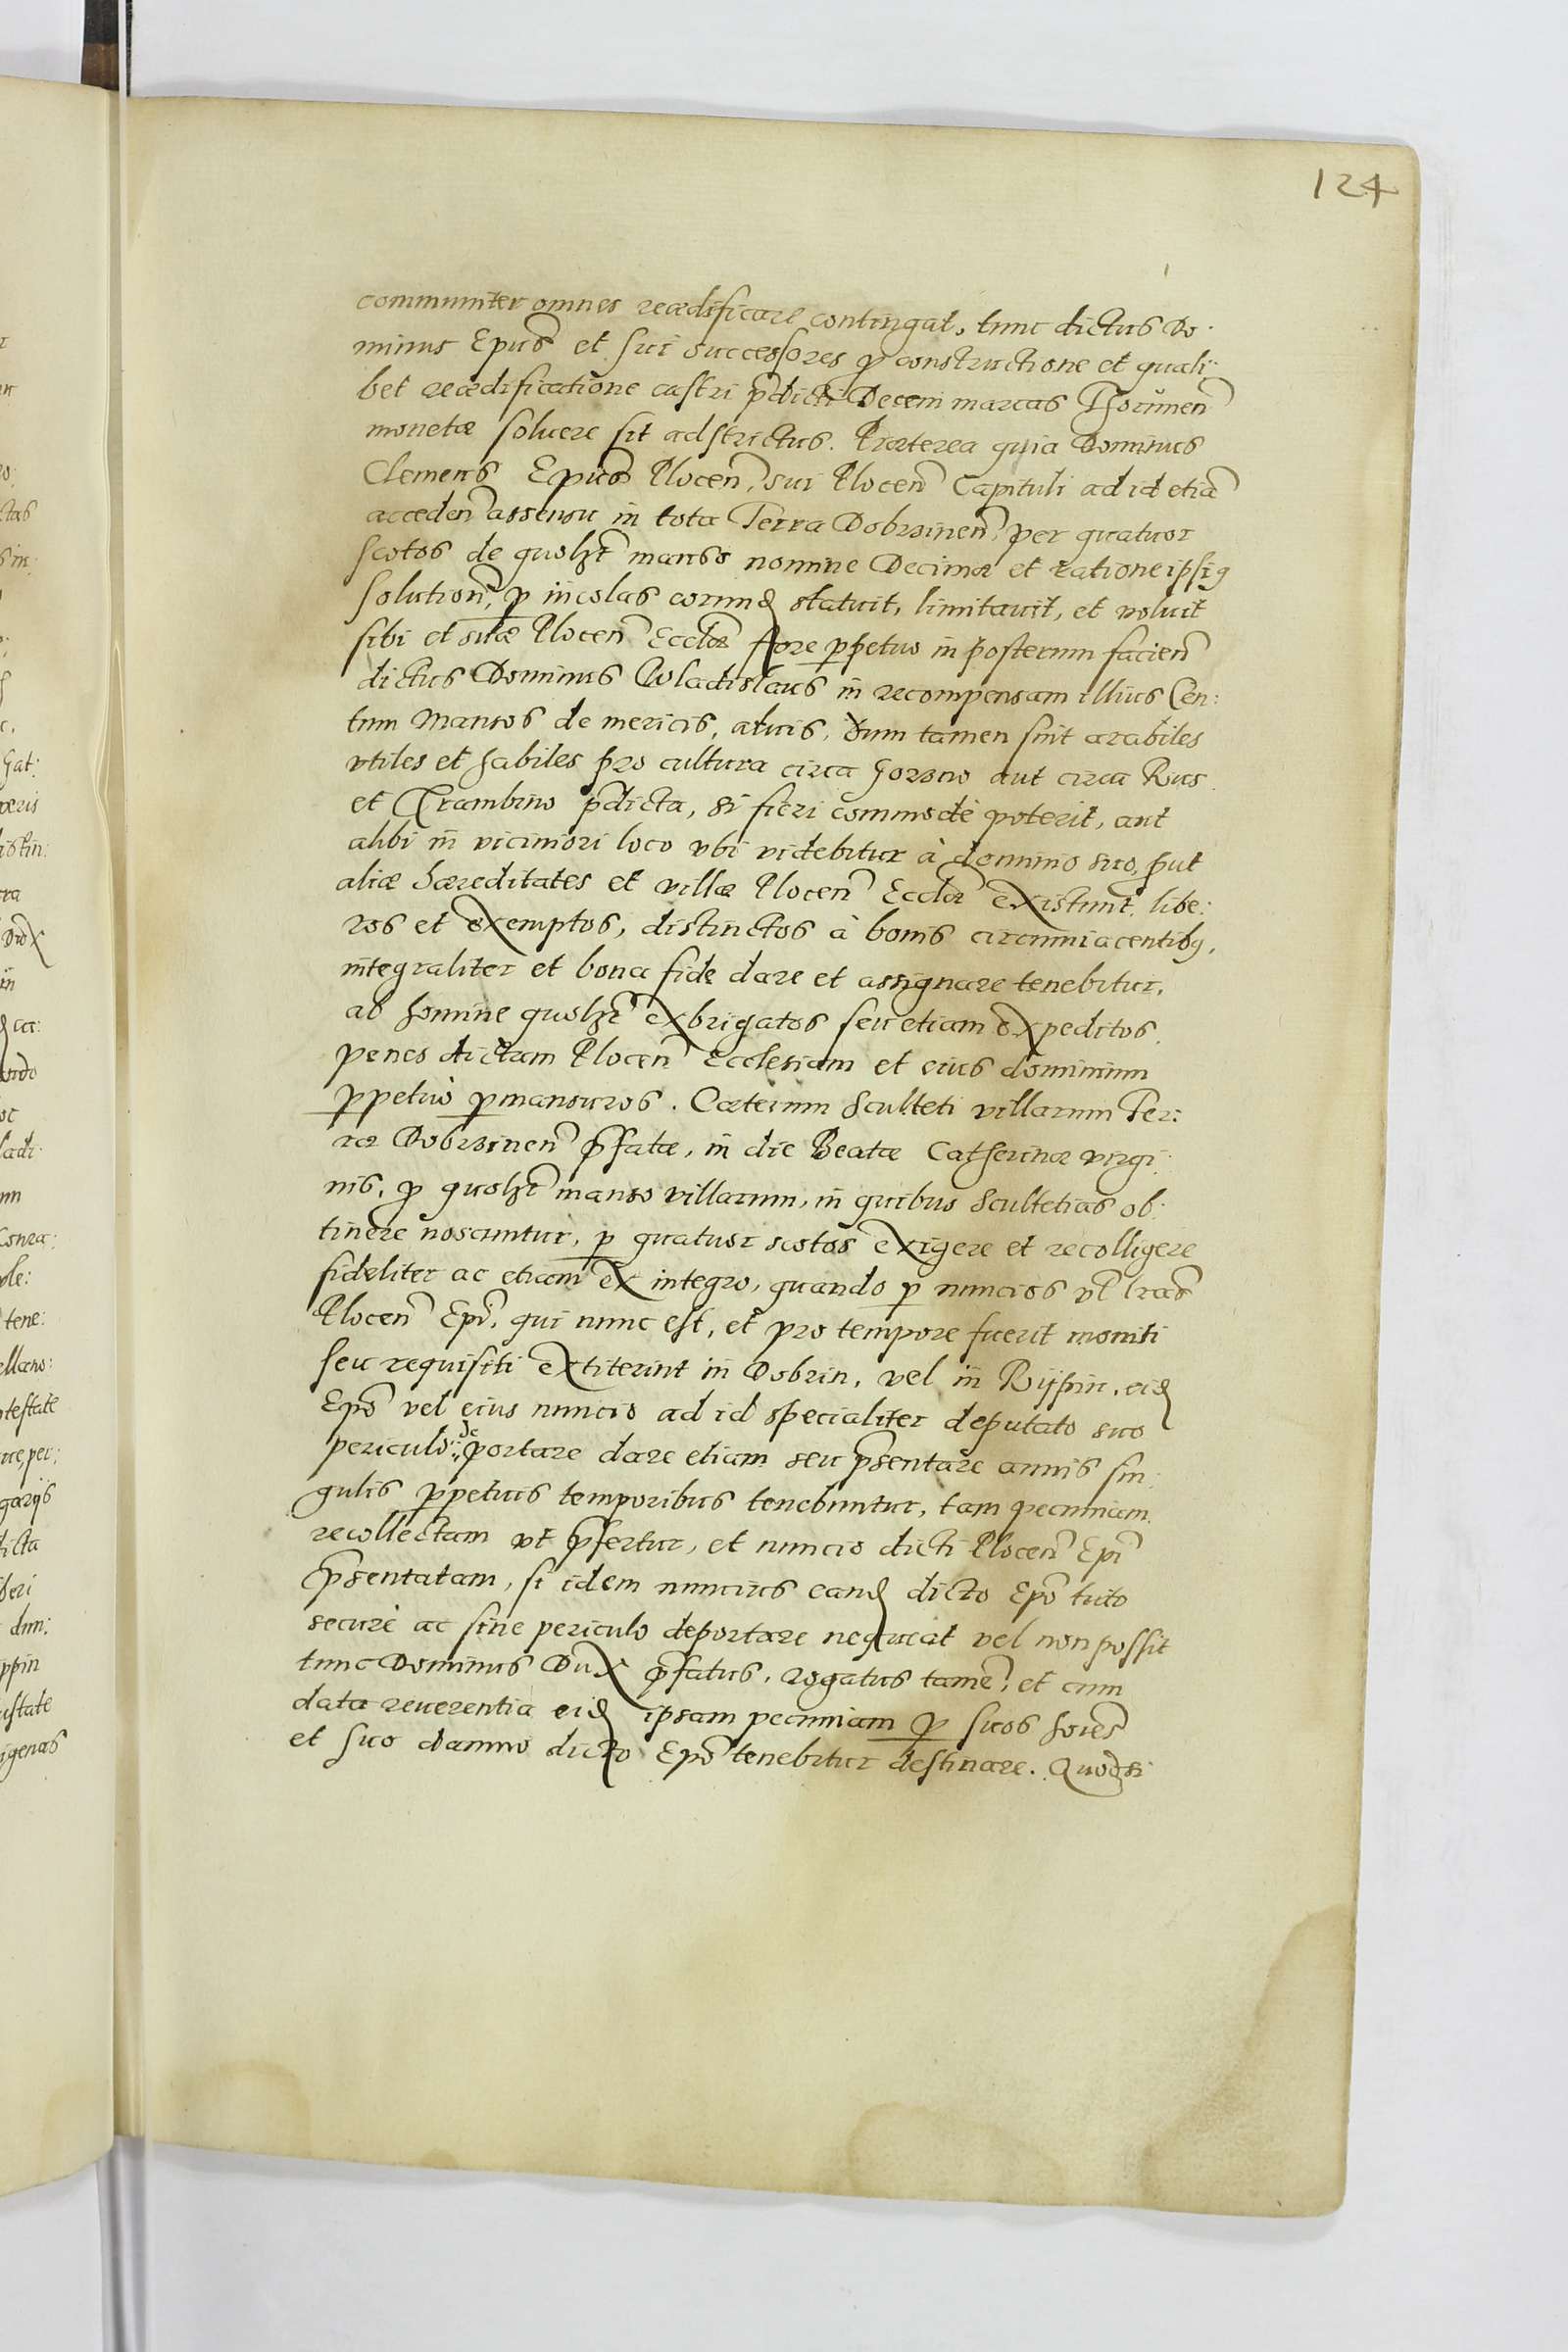 124
communiter omnes reædificare contingat, tunc dictus Do:
minus Epus et sui successores p constructione et quali:
bet reædificatione castri pdicti Decem marcas Thorunen
monetæ soluere sit adstrictus. Præterea quia Dominus
Clemens Epus Plocen, sui Plocen Capituli ad id etiã
acceden assensu in tota Terra Dobrzinen, per quatuor
scotos de quolzt manso nomine Decimæ et ratione ipsiq
solution, p incolas eorund statuit, limitauit, et voluit
sibi et suæ Plocen Ecclæ fore ppetuo in posterum facien
dictus Dominus Wladislaus in recompensam illius Cen:
tum Mansos de mericis, aluis, dum tamen sint arabiles
vtiles et habiles pro cultura circa Gorzno aut circa Rus
et Chrambino pdicta, si fieri commodè poterit, aut
alibi in viciniori loco vbi videbitur à domino suo, put
aliæ hæreditates et villæ Plocen Ecclæ existunt, libe:
ros et exemptos, distinctos à bonis circumiacentibq,
integraliter et bona fide dare et assignare tenebitur,
ab homine quolzt exbrigatos seu etiam expeditos
penes dictam Plocen Ecclesiam et eius dominium
ppetuò pmansuros. Cæterum Sculteti villarum Ter:
ræ Dobrzinen pfatæ, in die Beatæ Catherinæ virgi:
nis, p quolzt manso villarum, in quibus Scultetias ob:
tinere noscuntur, p quatuor scotos exigere et recolligere
fideliter ac etiam ex integro, quando p nuncios vl lras
Plocen Epi, qui nunc est, et pro tempore fuerit moniti
seu requisiti extiterint in Dobrin, vel in Rijpin, eid
Epo vel eius nuncio ad id specialiter deputato suo
periculo de portare dare etiam seu psentare annis sin:
gulis ppetuis temporibus tenebuntur, tam pecuniam
recollectam vt pfertur, et nuncio dicti Plocen Epi
psentatam, si idem nuncius eand dicto Epo tuto
securè ac sine periculo deportare nequeat vel non possit
tunc Dominus Dux pfatus, rogatus tamē, et cum
data reuerentia eid ipsam pecuniam p suos hoies
et suo damno dicto Epo tenebitur destinare. Quodsi